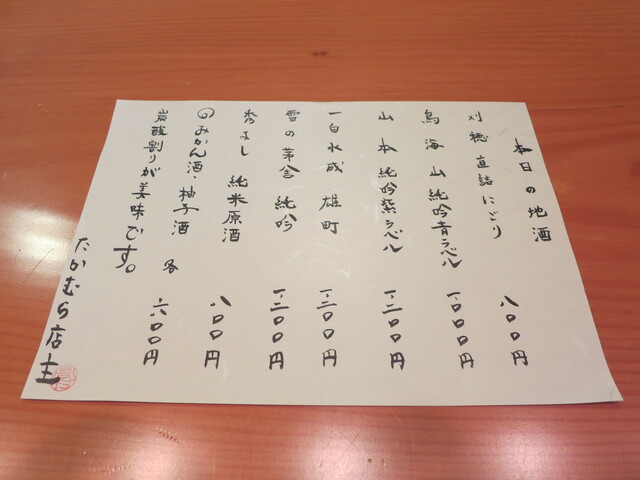 本日の地酒
刈穂 直詰にごり 八〇〇円
鳥海山 純吟青ラベル 一、〇〇〇円
山本 純吟紫ラベル 一、二〇〇円
一白水成 雄町 一、二〇〇円
雪の茅舎 純吟 一、二〇〇円
秀よし 純米原酒 八〇〇円
◎みかん酒・柚子酒 各 六〇〇円
炭酸割りが美味です。
たかむら店主